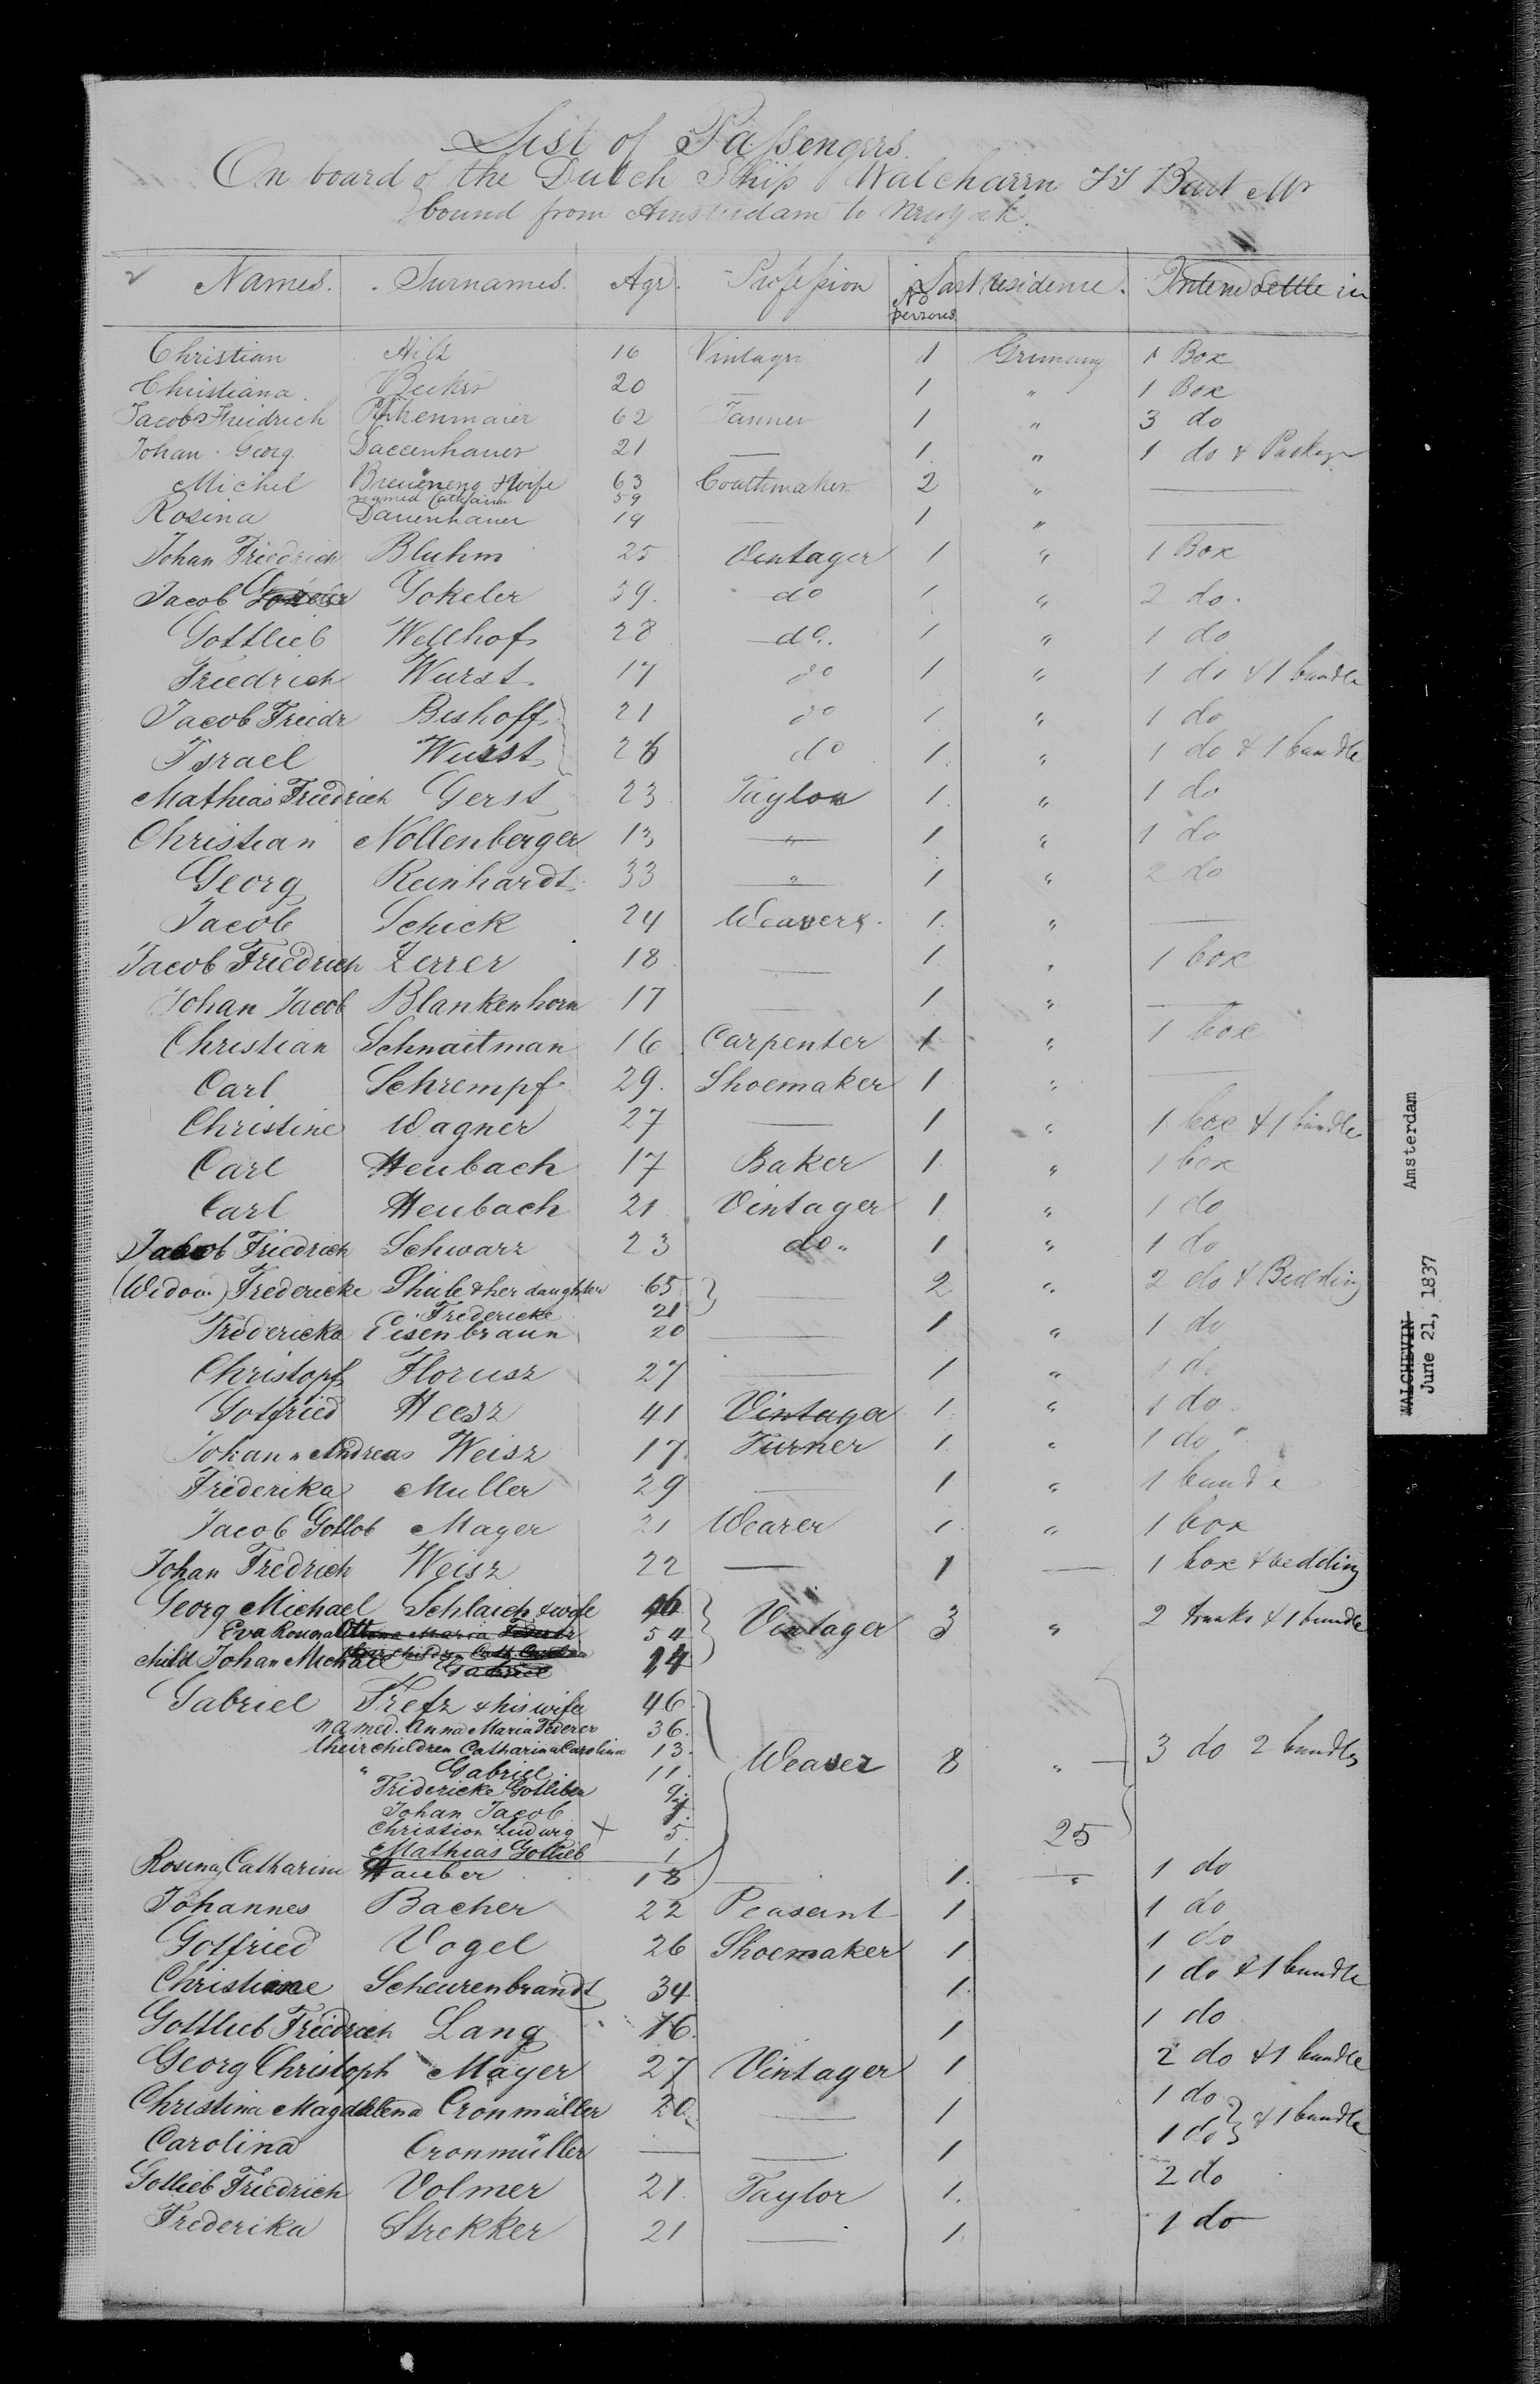 List of Passengers
On board of the Dutch Ship Walcharrn Bart Mr
bound from Amsterdam to New York.
Names. Surnames. Age. Profession No persons Last residence. Intend settle in
Christian Hilz 16 Vintager 1 Germany 1 Box
Christiana Beeker 20 — 1 " 1 Box
Jacob Freidrich 62 Tanner 1 " 3 do
Johan Georg Daccenhauer 21 — 1 " 1 do &
Michel & wife 63 2 " —
named 59
Rosina Dauenhauer 19 — 1 " —
Johan Friedrich Bluhm 25 Vintager 1 " 1 Box
Jacob Gokeler 59. do 1 " 2 do.
Gottlieb Wellhof 28 do. 1 " 1 do
Friedrich Wurst 17 do 1 " 1 do & 1 bundle
Jacob Freidr Bishoff 21 do 1 " 1 do
Israel Wurst 26 do 1 " 1 do & 1 bundle
Mathias Friedrich Gerst 23 Taylor 1 " 1 do
Christian Nollenberger 13 " 1 " 1 do
Georg Reinhardt 33 " 1 " 2 do
Jacob Schick 24 Weavers 1 " —
Jacob Friedrich Zerrer 18 — 1 " 1 box
Johan Jacob Blankenhorn 17 — 1 " —
Christian Schnaitman 16 Carpenter 1 " 1 box
Carl Schrempf 29. Shoemaker 1 " —
Christine Wagner 27 — 1 " 1 box & 1 bundle
Carl Heubach 17 Baker 1 " 1 box
Carl Heubach 21 Vintager 1 " 1 do
Jacob Friedrich Schwarz 23 do " 1 " 1 do
(Widow) Fredericke Shule & her daughter 65 — 2 " 2 do & Bedding
Fredericke 21
Fredericka Eisenbraun 20 — 1 " 1 do
Christopf Florusz 27 — 1 " 1 do
Gotfried Heesz 41 Vintager 1 " 1 do
Johann Andreas Weisz 17 Turner 1 " 1 do
Friederika Muller 29 — 1 " 1 bundle
Jacob Gotlob Mayer 21 Wearer 1 " 1 box
Johan Fredrich Weisz 22 — 1 — 1 box & bedding
Georg Michael Schlaich & wife 46 Vintager 3 " 2 trunks & 1 bundle
Eva Rosina Ott Anna Maria Federer 54
child Johan Michael their children Cath Carolina Gabriel 14
Gabriel Tretz & his wife 46
named. Anna Maria Federer 36.
their children Catharina Carolina 13.
" Gabriel 11. Weaver 8 " — 3 do 2 bundles
Fridericke Gotliben 9
Johan Jacob 7.
Christian Ludwig + 5. 25
Mathias Gotlieb 1
Rosina Catharine Hauber 18 — 1. " 1 do
Johannes Bacher 22 Peasant 1 1 do
Gotfried Vogel 26 Shoemaker 1 1 do
Christiane Scheurenbrandt 34 1. 1 do & 1 bundle
Gottlieb Freidrich Lang 16. 1 1 do
Georg Christoph Mayer 27 Vintager 1 2 do & 1 bundle
Christina Magdalena Cronmüller 20 — 1 1 do
Carolina Cronmüller — — 1 1 do & 1 bundle
Gotlieb Friedrich Volmer 21. Taylor 1. 2 do
Frederika Strekker 21 — 1. 1 do
WALCHEVIN Amsterdam
June 21, 1837